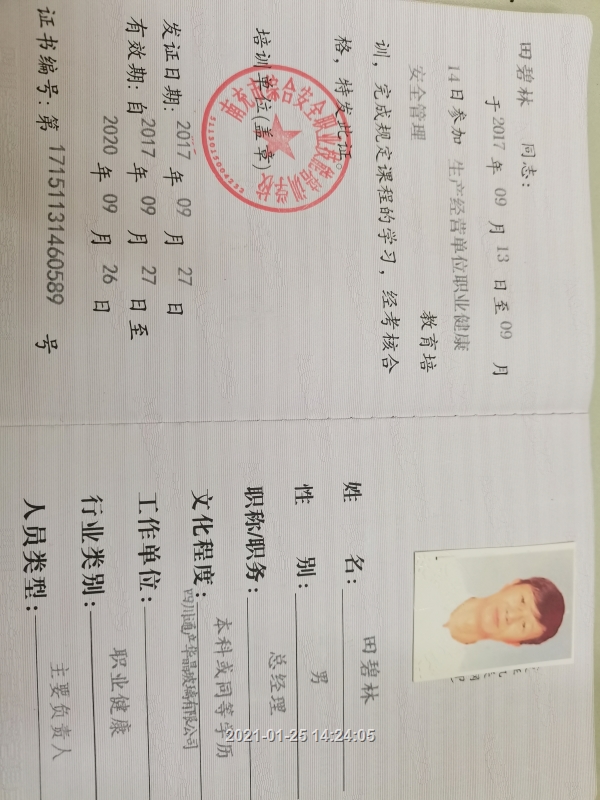 姓 名： 田碧林
性 别： 男
职称/职务： 总经理
文化程度： 本科或同等学历
工作单位： 四川通产华晶玻璃有限公司
行业类别： 职业健康
人员类型： 主要负责人
田碧林 同志：
于2017 年 09 月 13 日至 09 月
14日参加 生产经营单位职业健康
安全管理 教育培
训，完成规定课程的学习，经考核合
格，特发此证。
培训单位(盖章)
发证日期： 2017 年 09 月 27 日
有效期：自 2017 年 09 月 27 日至
2020 年 09 月 26 日
证书编号：第 17151131460589 号
2021-01-25 14:24:05